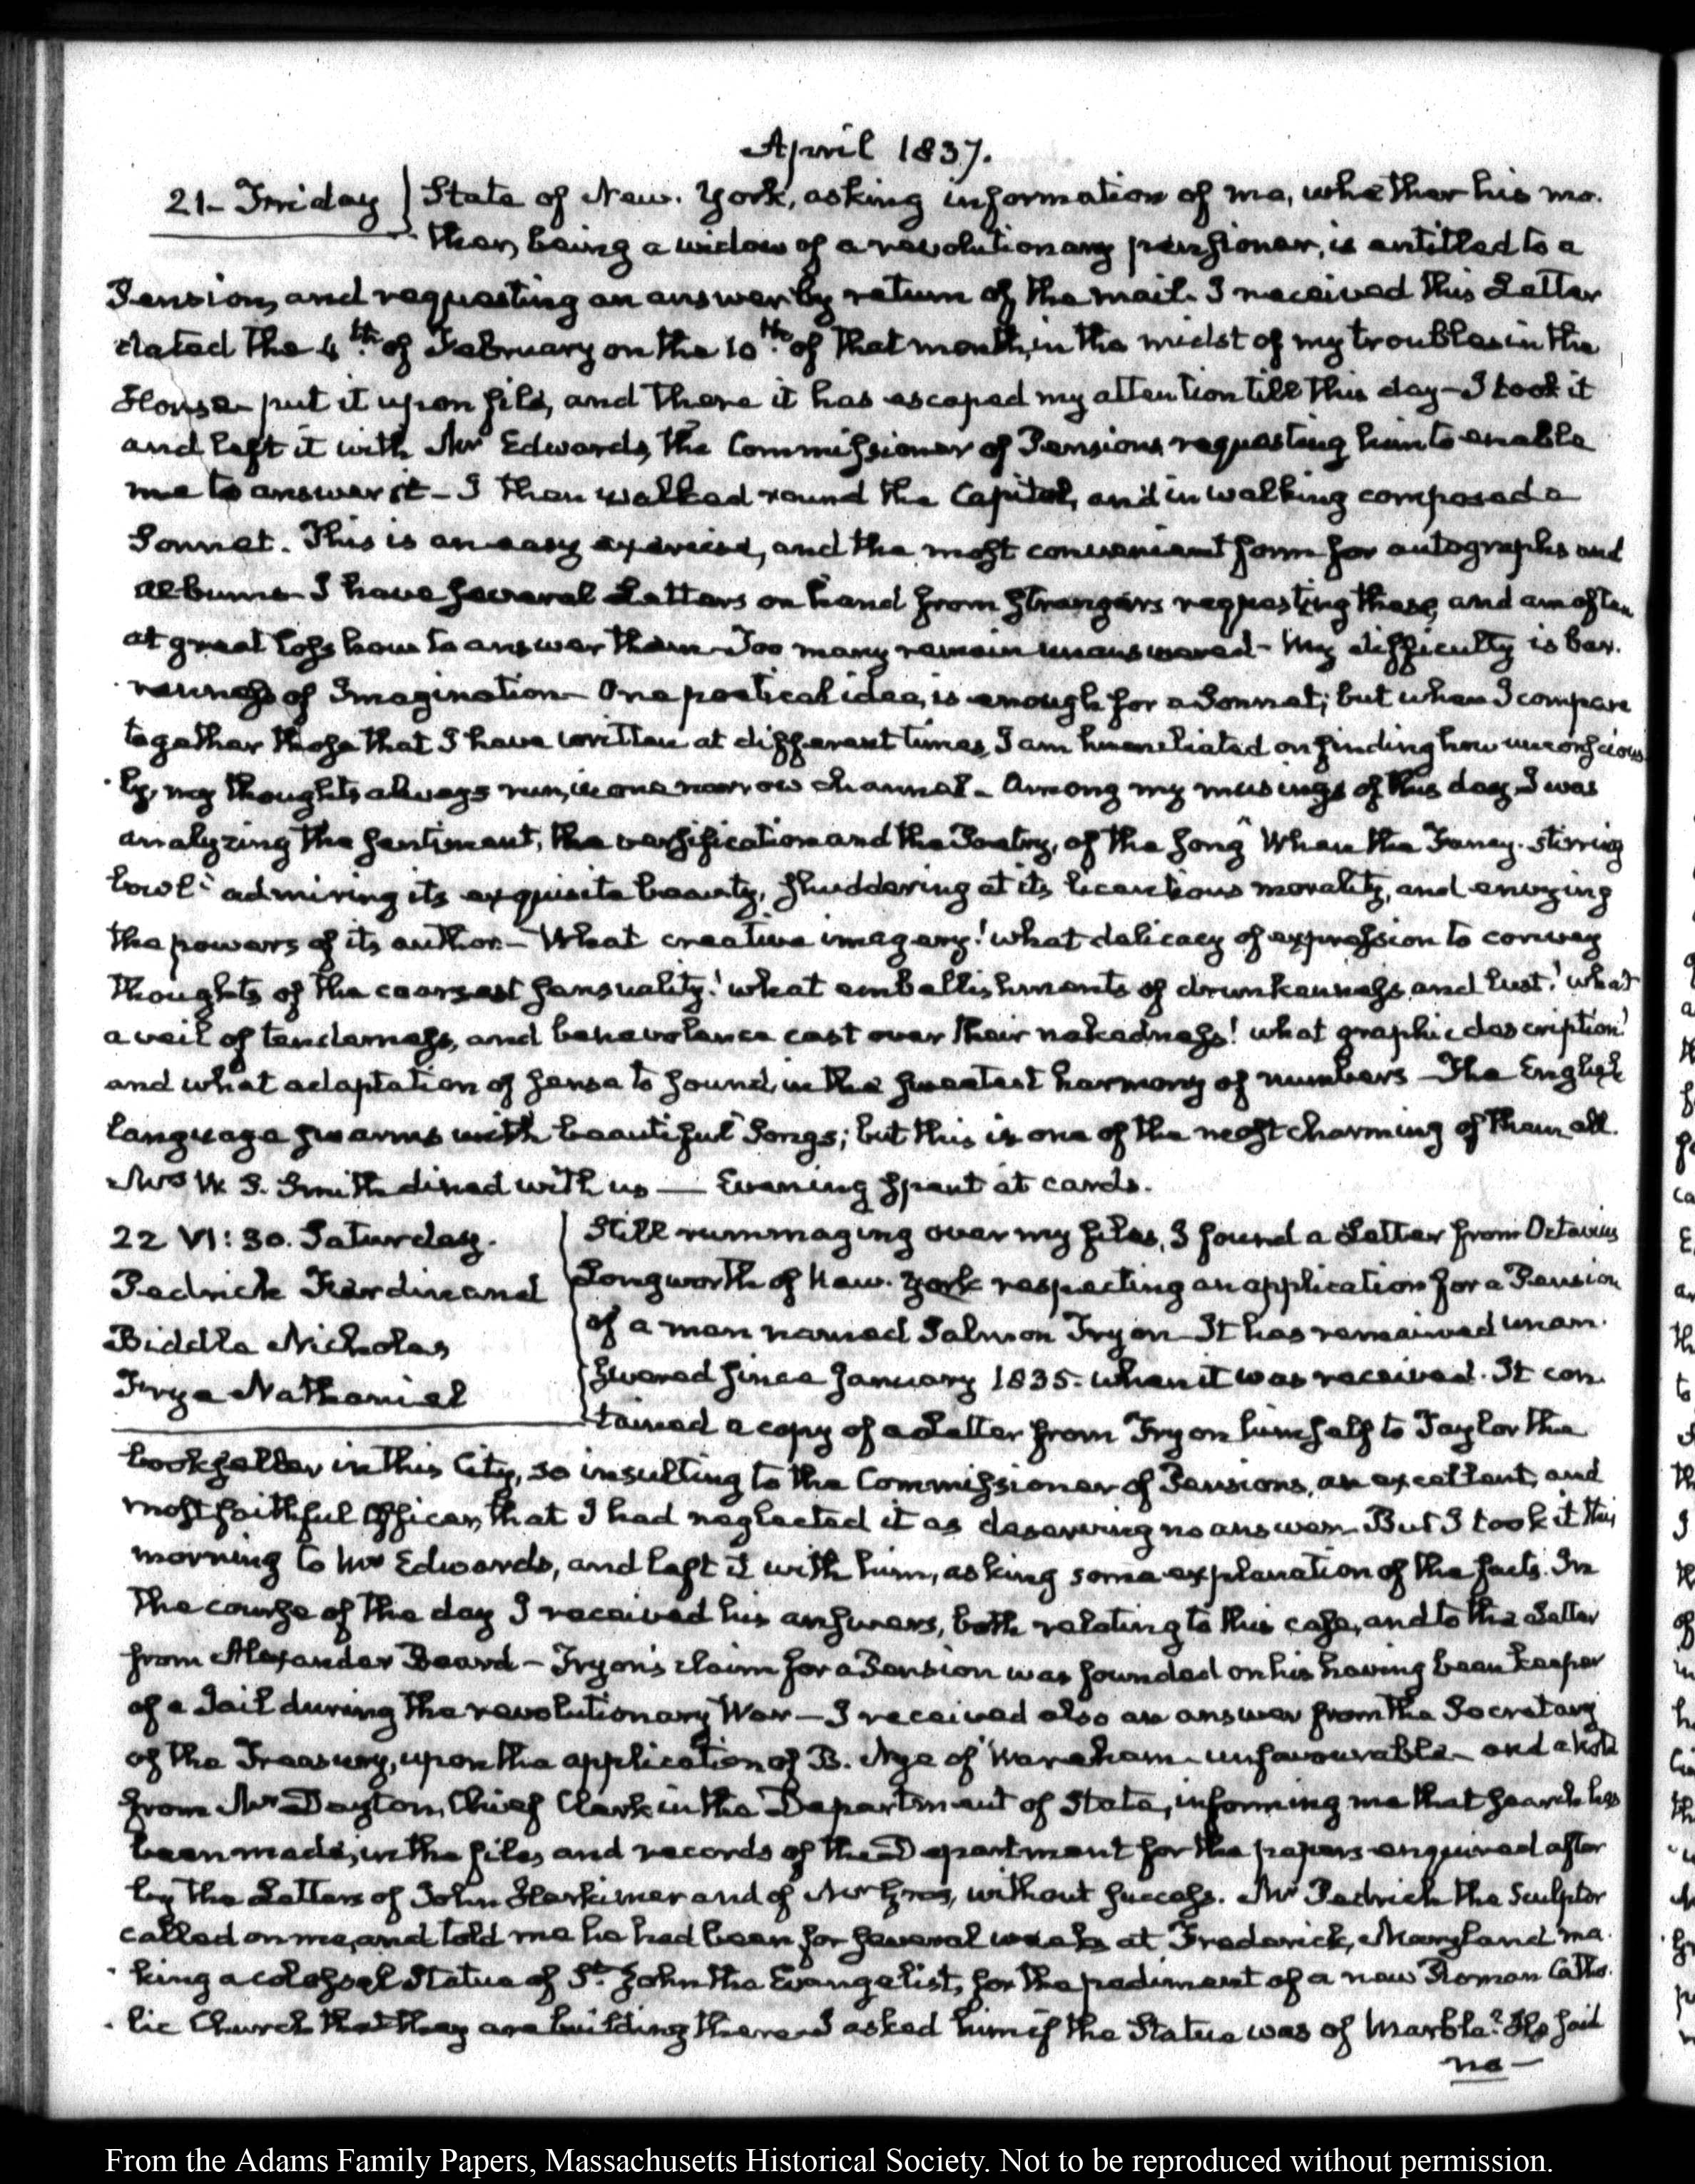 April 1837.
21- Friday } State of New-York, asking information of me, whether his mo-
ther, being a widow of a revolutionary pensioner, is entitled to a
Pension, and requesting an answer by return of the mail. I received this Letter
dated the 4th. of February on the 10th. of that month, in the midst of my troubles in the
House put it upon file, and there it has escaped my attention till this day - I took it
and left it with Mr Edwards, the Commissioner of Pensions requesting him to enable
me to answer it - I then walked round the Capitol, and in walking composed a
Sonnet. This is an easy exercise, and the most convenient form for autographs and
albums. I have several Letters on hand from strangers requesting these, and am often
at great loss how to answer them - Too many remain unanswered - My difficulty is bar-
renness of Imagination - One poetical idea, is enough for a Sonnet; but when I compare
together those that I have written at different times, I am humiliated on finding how unconscious-
ly, my thoughts always run, in one narrow channel - Among my musings of this day, I was
analyzing the sentiment, the versification and the Poetry, of the song "When the Fancy-stirring
bowl" admiring its exquisite beauty, shuddering at its licentious morality, and envying
the powers of its author - What creative imagery! what delicacy of expression to convey
thoughts of the coarsest sensuality! what embellishments of drunkenness, and lust! what
a veil of tenderness, and benevolence cast over their nakedness! what graphic description!
and what adaptation of sense to sound, in the sweetest harmony of numbers - The English
language swarms with beautiful Songs; but this is one of the most charming of them all.
Mrs W. S. Smith dined with us — Evening spent at cards.
22 VI: 30. Saturday.
Pedrick Ferdinand
Biddle Nicholas
Frye Nathaniel
Still rummaging over my files, I found a Letter from Octavius
Longworth of New-York respecting an application for a Pension
of a man named Salmon Tryon - It has remained unan-
swered since January 1835. when it was received. It con-
tained a copy of a Letter from Tryon himself to Taylor the
bookseller in this City, so insulting to the Commissioner of Pensions, an excellent, and
most faithful Officer, that I had neglected it as deserving no answer - But I took it this
morning to Mr Edwards, and left it with him, asking some explanation of the facts. In
the course of the day I received his answers, both relating to this case, and to the Letter
from Alexander Beard - Tryon's claim for a Pension was founded on his having been keeper
of a Jail during the revolutionary War - I received also an answer from the Secretary
of the Treasury, upon the application of B. Nye of Wareham - unfavourable - and a Note
from Mr Dayton, Chief Clerk in the Department of State, informing me that search has
been made, in the files, and records of the Department for the papers enquired after
by the Letters of John Herkimer and of Mr, without success. Mr Pedrick the Sculptor
called on me, and told me he had been for several weeks at Frederick, Maryland ma-
king a colossal Statue of St. John the Evangelist, for the pediment of a new Roman Catho-
lic Church that they are building there - I asked him if the Statue was of Marble? He said
no -
From the Adams Family Papers, Massachusetts Historical Society. Not to be reproduced without permission.